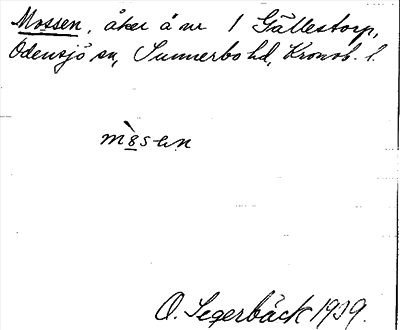 Mossen, åker å nr 1 Gällestorp,
Odensjö sn, Sunnerbo hd, Kronob. l.
O. Segerbäck 1939.